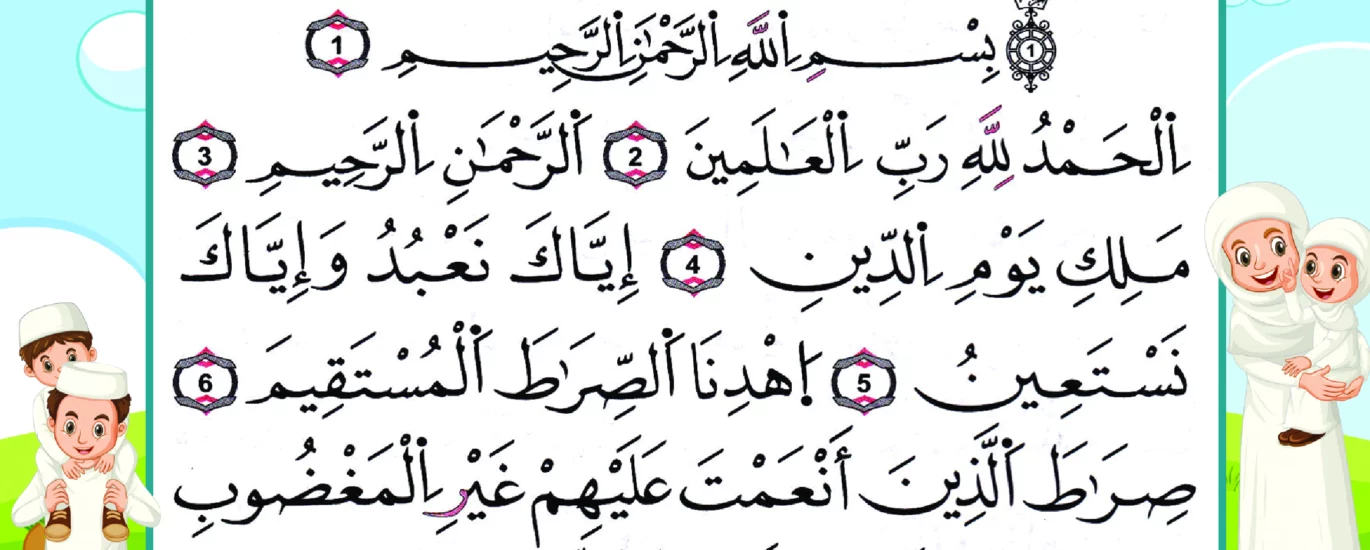 1 بِسْمِ اِ۬للَّهِ اِ۬لرَّحْمَٰنِ اِ۬لرَّحِيمِ 1
اِ۬لْحَمْدُ لِلَّهِ رَبِّ اِ۬لْعَٰلَمِينَ 2 اَ۬لرَّحْمَٰنِ اِ۬لرَّحِيمِ 3
مَلِكِ يَوْمِ اِ۬لدِّينِ 4 إِيَّاكَ نَعْبُدُ وَإِيَّاكَ
نَسْتَعِينُ 5 اِ۪هْدِنَا اَ۬لصِّرَٰطَ اَ۬لْمُسْتَقِيمَ 6
صِرَٰطَ اَ۬لَّذِينَ أَنْعَمْتَ عَلَيْهِمْ غَيْرِ اِ۬لْمَغْضُوبِ